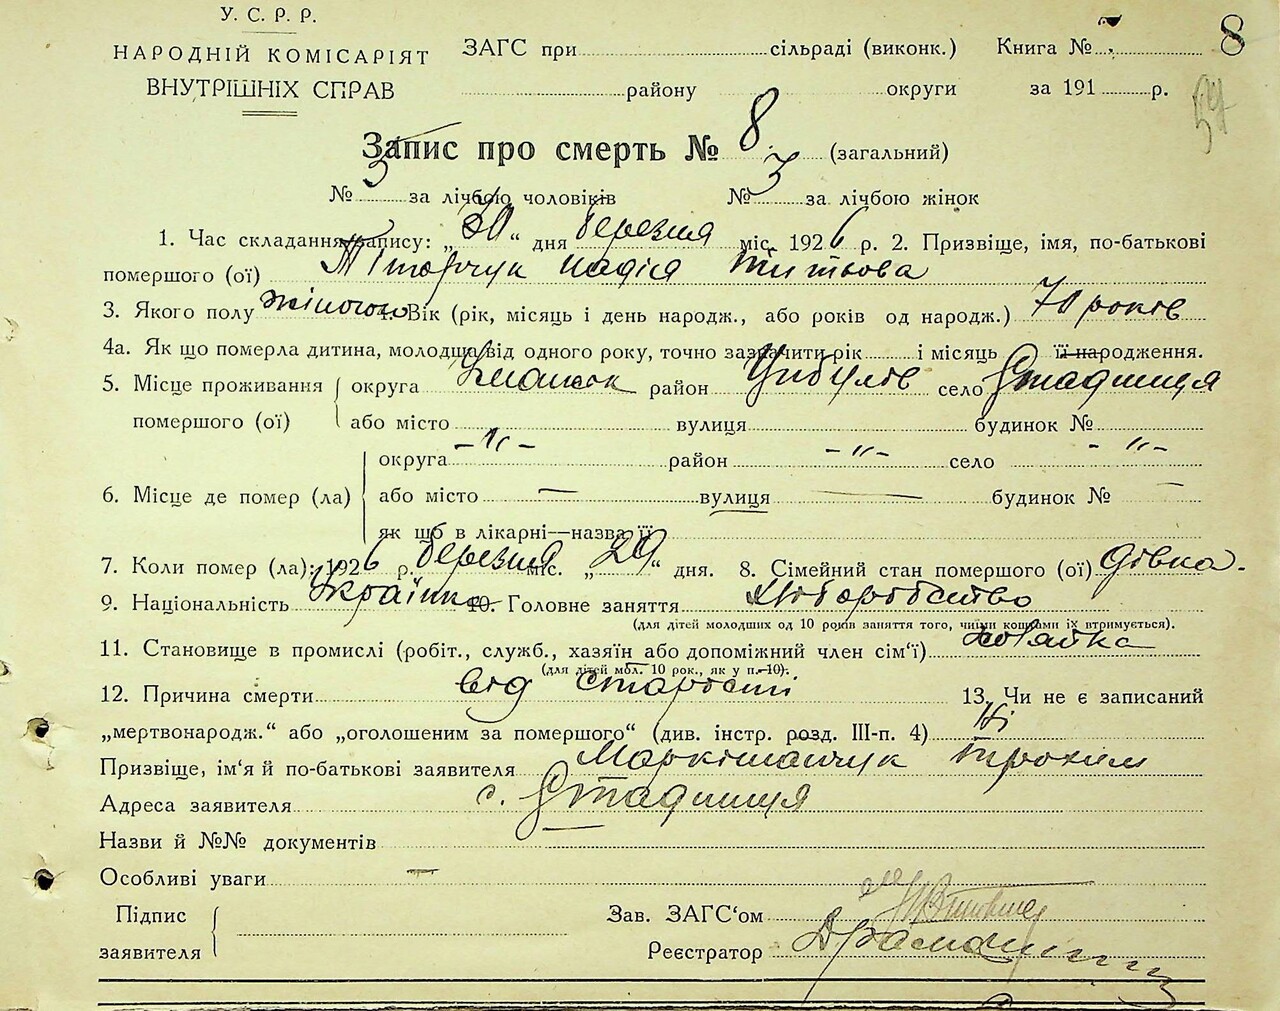 У. С. Р. Р.
НАРОДНІЙ КОМІСАРІЯТ
ВНУТРІШНІХ СПРАВ
ЗАГС при сільраді (виконк.) Книга №
району округи за 191 р.
8
Запис про смерть № 8 (загальний)
№ 5 за лічбою чоловіків № 3 за лічбою жінок
1. Час складання запису: „30“ дня березня міс. 1926 р. 2. Призвіще, імя, по-батькові
помершого (ої) Тітарчук Надія Титкова
3. Якого полу жіночого 4. Вік (рік, місяць і день народж., або років од народж.) 70 років
4а. Як що померла дитина, молодша від одного року, точно зазначити рік і місяць її народження.
5. Місце проживання помершого (ої) округа Уманськ район Цибулів село Стадниця
або місто вулиця будинок №
6. Місце де помер (ла) округа -"- район -"- село -"-
або місто — вулиця — будинок № —
як що в лікарні—назва її
7. Коли помер (ла): 1926 р. березня міс. „29“ дня. 8. Сімейний стан помершого (ої) дівка.
9. Національність Українка 10. Головне заняття Хліборобство
(для дітей молодших од 10 років заняття того, чиїми коштами їх втримується).
11. Становище в промислі (робіт., служб., хазяїн або допоміжний член сім'ї) хозяйка
(для дітей мол. 10 рок., як у п. 10).
12. Причина смерти від старости 13. Чи не є записаний
„мертвонародж.“ або „оголошеним за помершого“ (див. інстр. розд. III-п. 4) Ні
Призвіще, ім'я й по-батькові заявителя Маркітанчук Трохим
Адреса заявителя с. Стадниця
Назви й №№ документів
Особливі уваги —
Підпис заявителя
Зав. ЗАГС'ом
Реєстратор